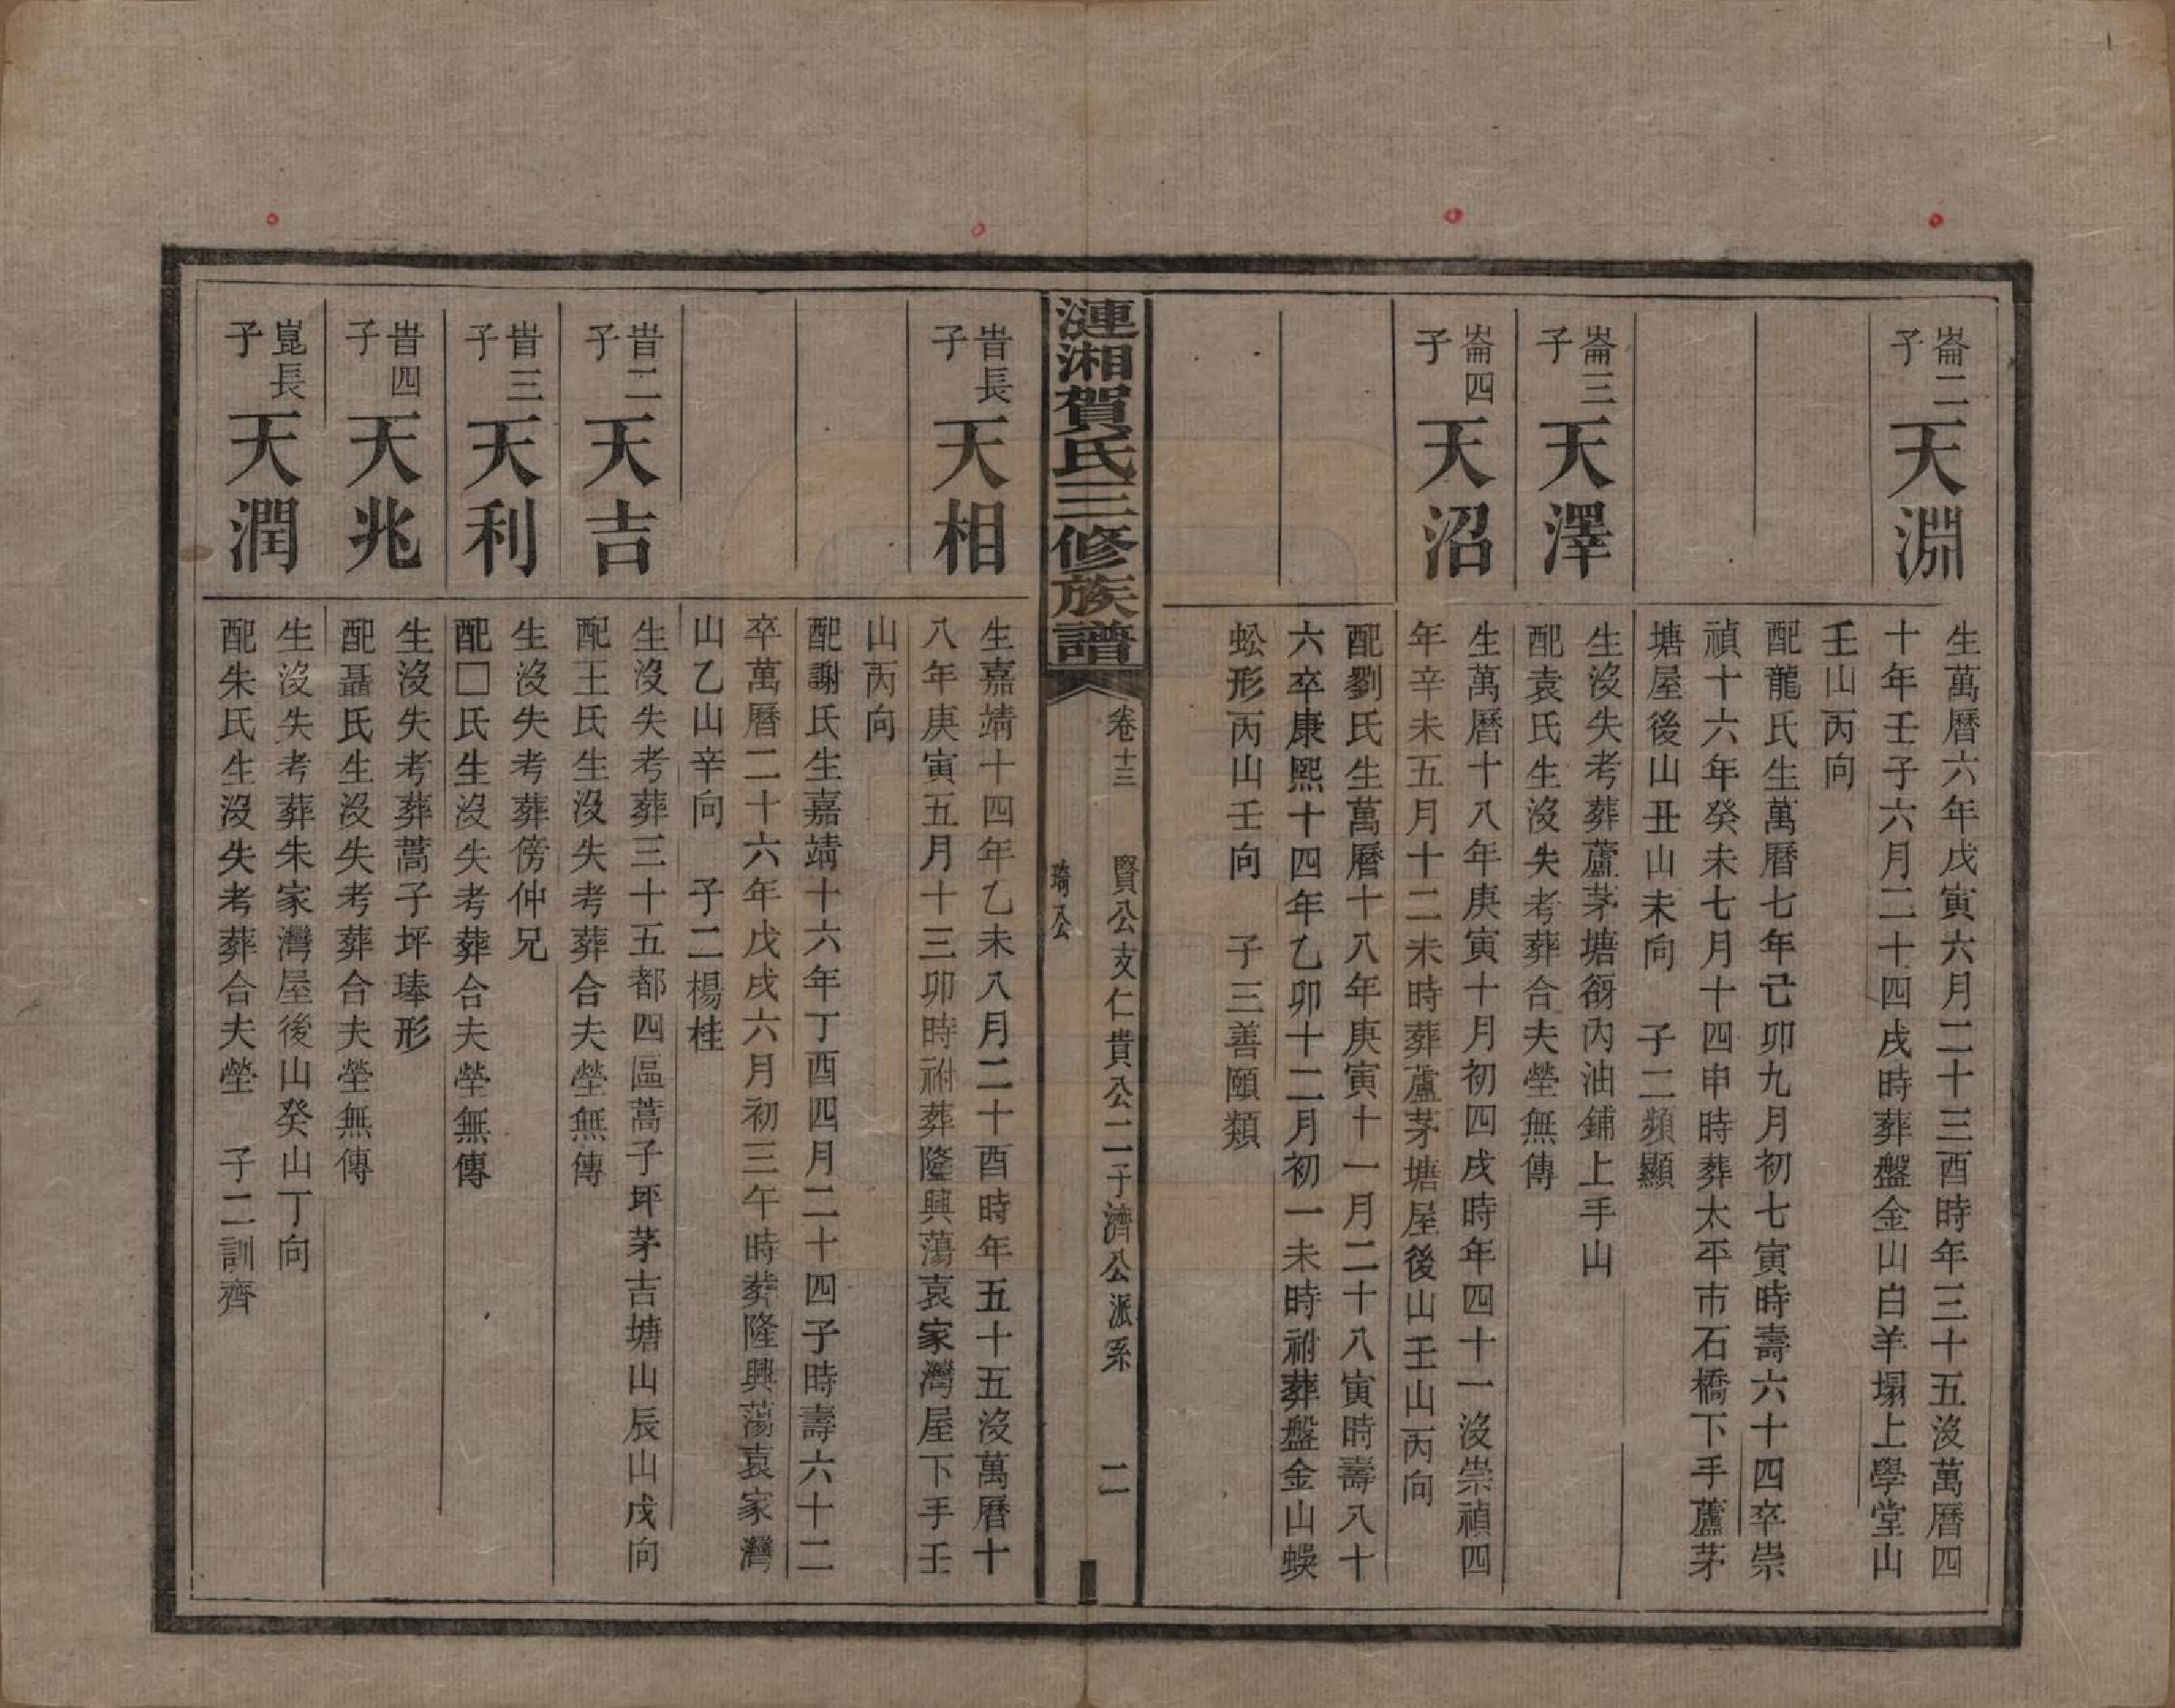 崙二子 天淵
生萬曆六年戊寅六月二十三酉時年三十五沒萬曆四
十年壬子六月二十四戌時葬盤金山白羊塌上學堂山
壬山丙向
配龍氏生萬曆七年己卯九月初七寅時壽六十四卒崇
禎十六年癸未七月十四申時葬太平市石橋下手蘆茅
塘屋後山丑山未向 子二頻顯
崙三子 天澤
生沒失考葬蘆茅塘谺內油鋪上手山
配袁氏生沒失考葬合夫塋無傳
崙四子 天沼
生萬曆十八年庚寅十月初四戌時年四十一沒崇禎四
年辛未五月十二未時葬蘆茅塘屋後山壬山丙向
配劉氏生萬曆十八年庚寅十一月二十八寅時壽八十
六卒康熙十四年乙卯十二月初一未時祔葬盤金山蜈
蚣形丙山壬向 子三善頤類
漣湘賀氏三修族譜
卷十三 賢公支仁貴公二子濟公派系 二
琦公
昔長子 天相
生嘉靖十四年乙未八月二十酉時年五十五沒萬曆十
八年庚寅五月十三卯時祔葬隆興蕩袁家灣屋下手壬
山丙向
配謝氏生嘉靖十六年丁酉四月二十四子時壽六十二
卒萬曆二十六年戊戌六月初三午時葬隆興蕩袁家灣
山乙山辛向 子二楊桂
昔二子 天吉
生沒失考葬三十五都四區蒿子坪茅吉塘山辰山戌向
配王氏生沒失考葬合夫塋無傳
昔三子 天利
生沒失考葬傍仲兄
配□氏生沒失考葬合夫塋無傳
昔四子 天兆
生沒失考葬蒿子坪琫形
配聶氏生沒失考葬合夫塋無傳
崑長子 天潤
生沒失考葬朱家灣屋後山癸山丁向
配朱氏生沒失考葬合夫塋 子二訓齊